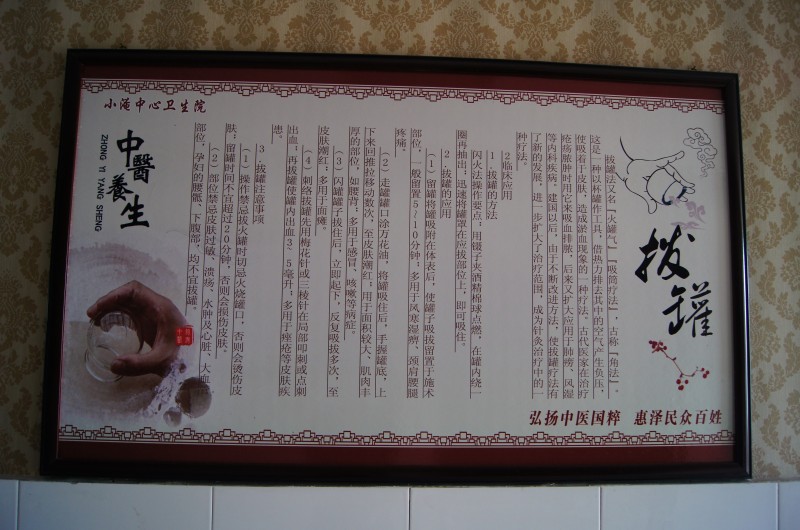 小滝中心卫生院
拔罐
拔罐法又名「火罐气」「吸筒疗法」，古称「角法」。
这是一种以杯罐作工具，借热力排去其中的空气产生负压，
使吸着于皮肤，造成瘀血现象的一种疗法。古代医家在治疗
疮疡脓肿时用它来吸血排脓，后来又扩大应用于肺痨、风湿
等内科疾病。建国以后，由于不断改进方法，使拔罐疗法有
了新的发展，进一步扩大了治疗范围，成为针灸治疗中的一
种疗法。
2临床应用
1 拔罐的方法
闪火法操作要点：用镊子夹酒精棉球点燃，在罐内绕一
圈再抽出；迅速将罐罩在应拔部位上，即可吸住。
2.拔罐的应用
（1）留罐将罐吸附在体表后，使罐子吸拔留置于施术
部位，一般留置5~10分钟；多用于风寒湿痹、颈肩腰腿
疼痛。
（2）走罐罐口涂万花油，将罐吸住后，手握罐底，上
下来回推拉移动数次，至皮肤潮红；用于面积较大、肌肉丰
厚的部位，如腰背；多用于感冒、咳嗽等病症。
（3）闪罐罐子拔住后，立即起下，反复吸拔多次，至
皮肤潮红；多用于面瘫。
（4）刺络拔罐先用梅花针或三棱针在局部叩刺或点刺
出血；再拔罐使罐内出血3~5毫升，多用于痤疮等皮肤疾
患。
3.拔罐注意事项
（1）操作禁忌拔火罐时切忌火烧罐口，否则会烫伤皮
肤；留罐时间不宜超过20分钟，否则会损伤皮肤。
（2）部位禁忌皮肤过敏、溃疡、水肿及心脏、大血
部位，孕妇的腰骶、下腹部，均不宜拔罐。
中醫養生
ZHONG YI YANG SHENG
弘扬中医国粹 惠泽民众百姓